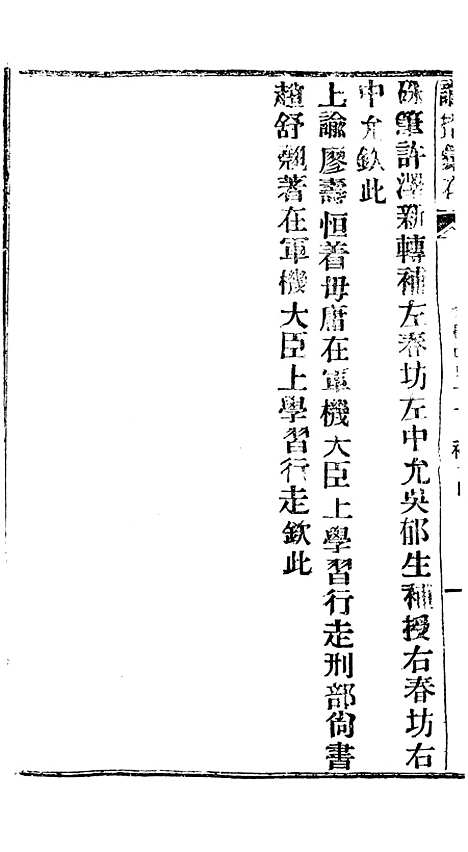 硃筆許澤新轉補左春坊左中允吳郁生補授右春坊右
中允欽此
上諭廖壽恒着毋庸在軍機大臣上學習行走刑部尙書
趙舒翹著在軍機大臣上學習行走欽此